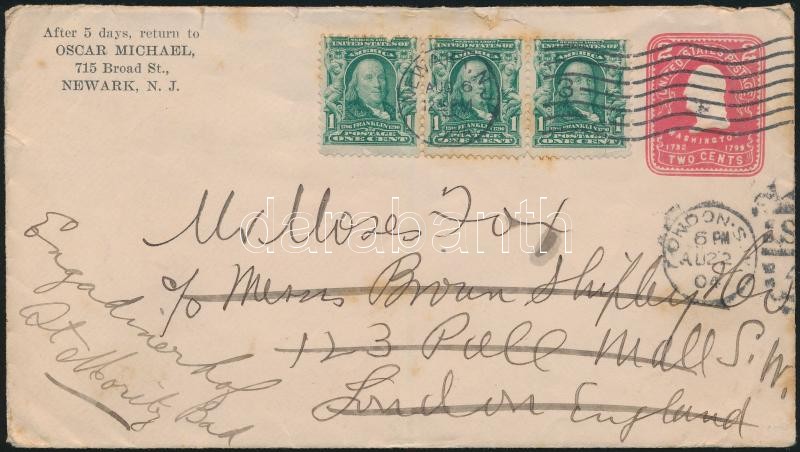 After 5 days, return to
OSCAR MICHAEL,
715 Broad St.,
NEWARK, N. J.
SERIES 1902
UNITED STATES OF AMERICA
1706 FRANKLIN 1790
1 POSTAGE 1
ONE CENT
UNITED STATES OF
1706 FRANKLIN 1790
1 POSTAGE 1
ONE CENT
UNITED STATES OF
1706 FRANKLIN 1790
1 POSTAGE 1
ONE CENT
NEWARK, N.J.
AUG 6
UNITED STATES POSTAGE
WASHINGTON
1732 1799
TWO CENTS
Mr. Moses Fox
c/o Messrs Brown Shipley & Co
123 Pall Mall S.W.
London England
LONDON.S.W
6 PM
AU 22
04
Engadinerhof
St Moritz Bad
darabanth